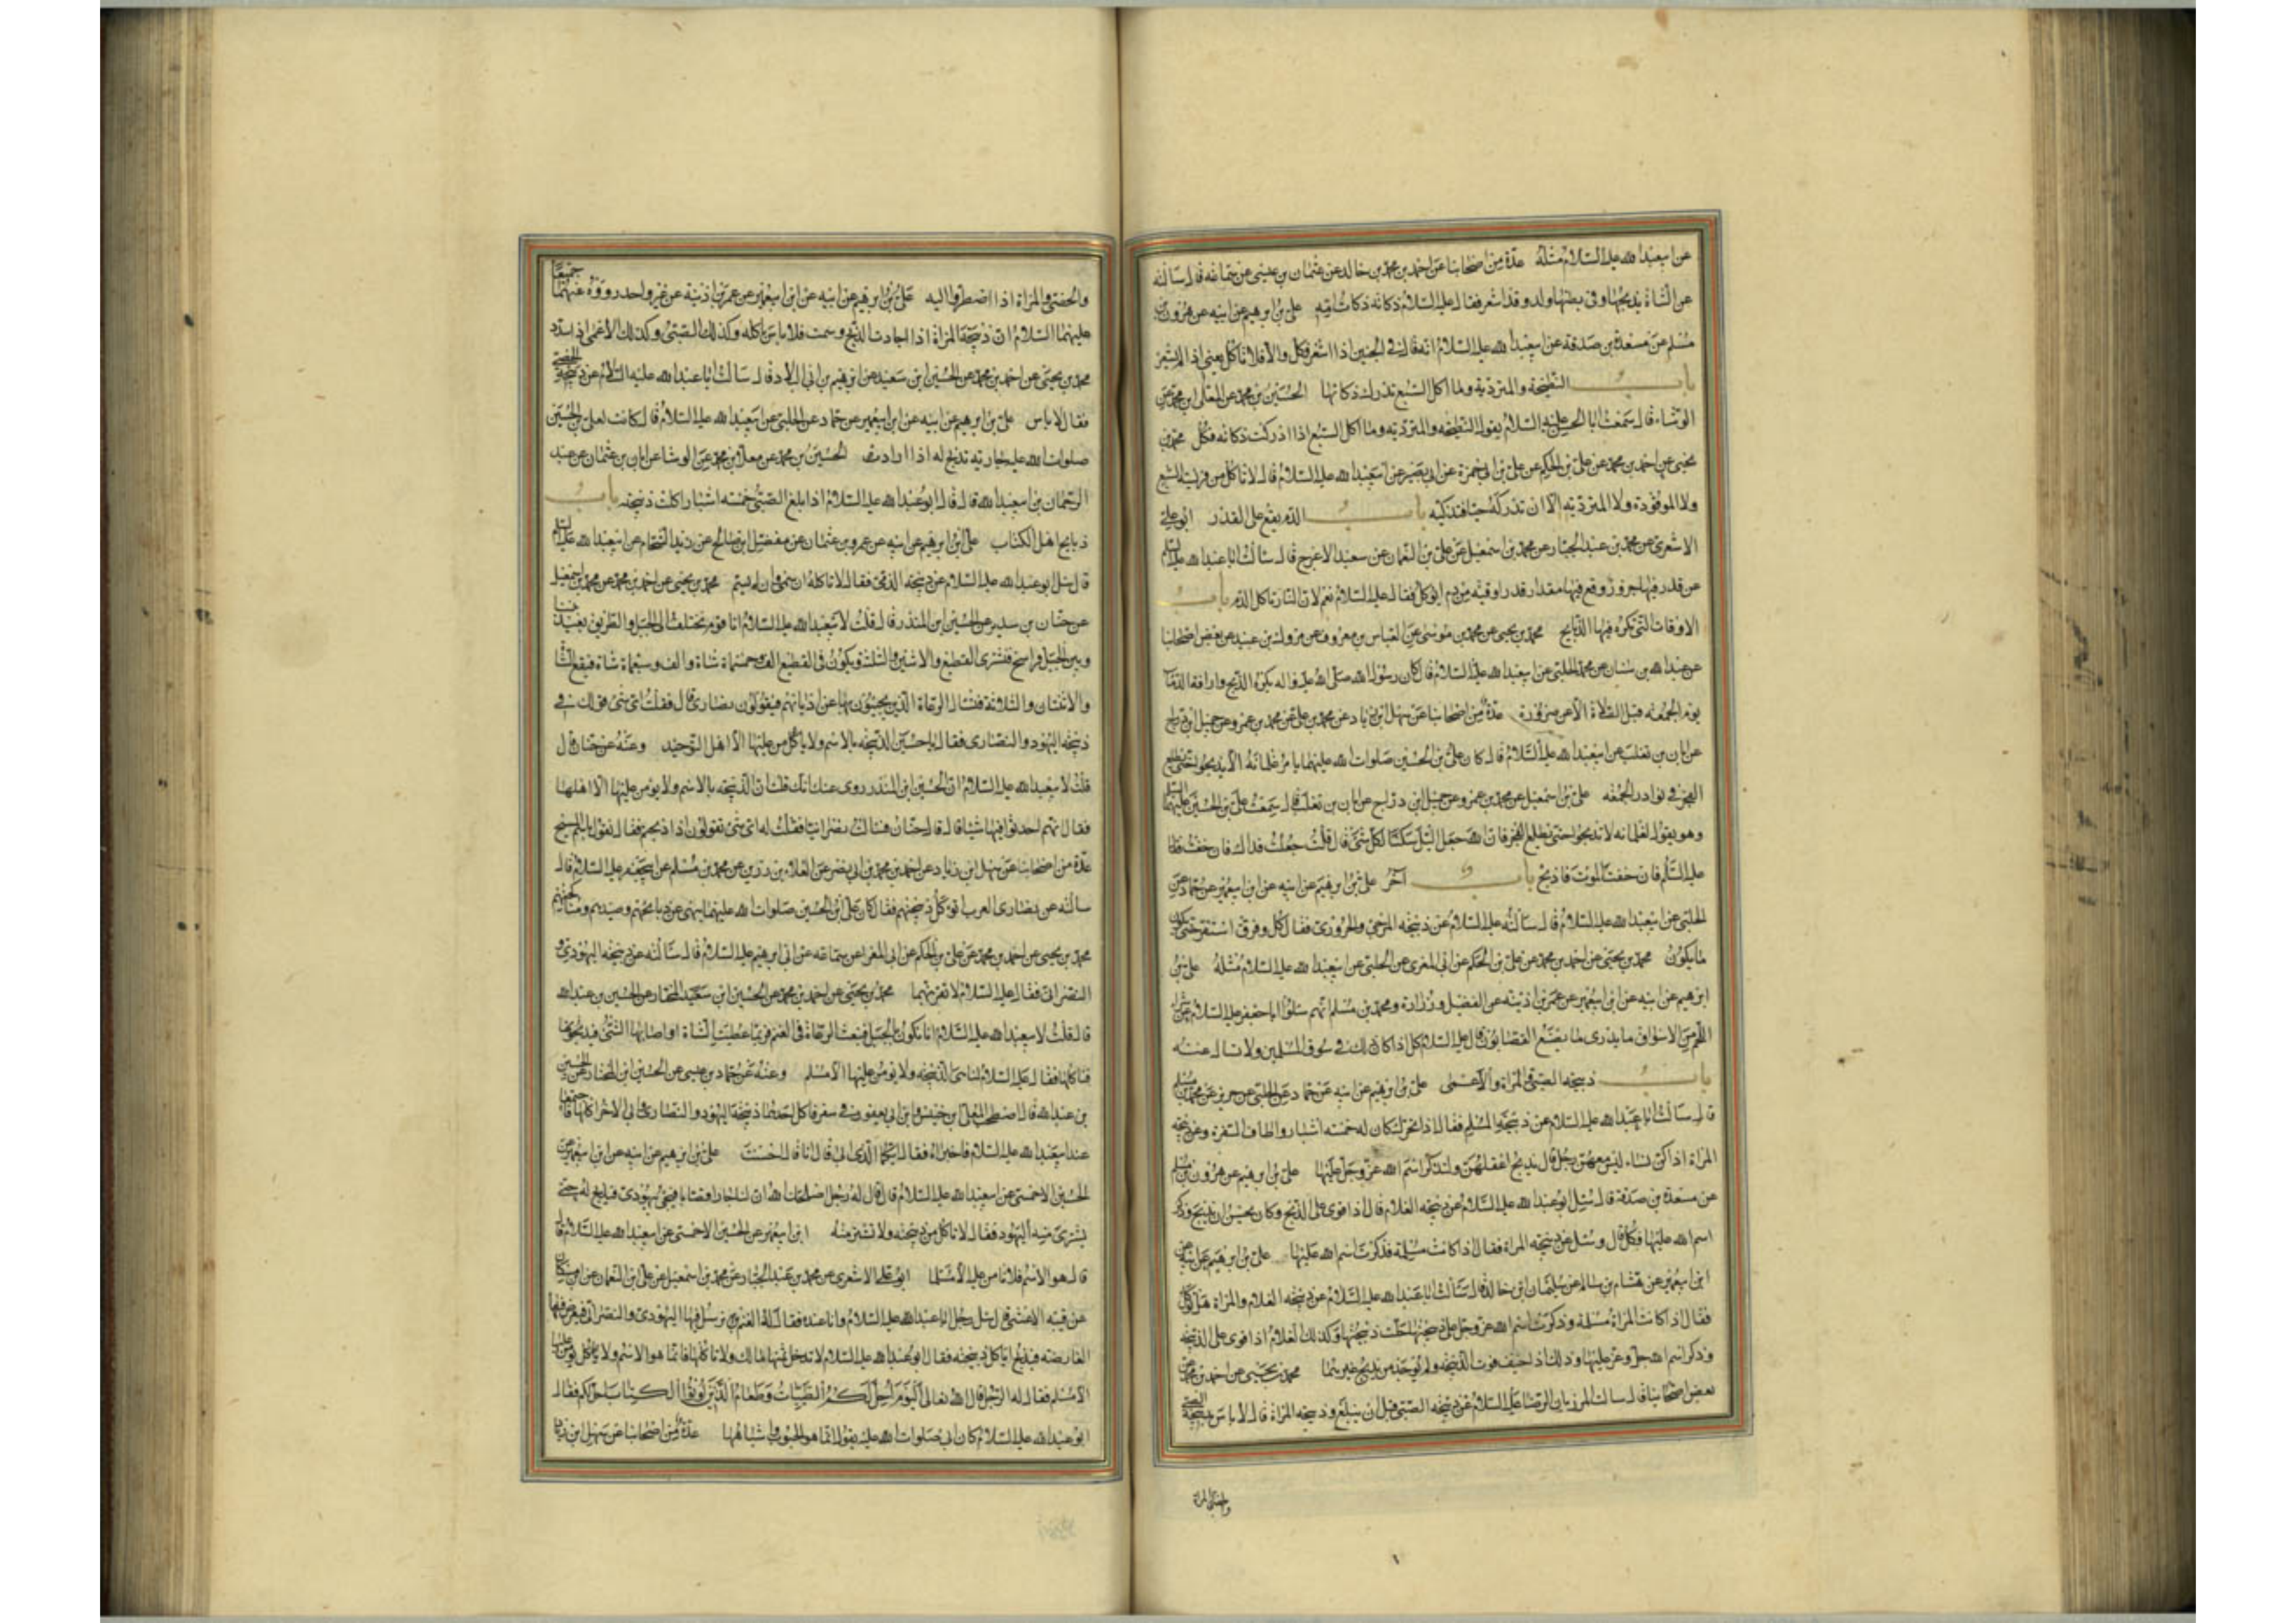 عن ابيعبد الله عليه السلام مثله عدة من اصحابنا عن احمد بن محمد بن خالد عن عثمان بن عيسى عن سماعة قال سالته
عن الشاة يذبحها وفى بطنها ولد وقد اشعر فقال عليه السلام ذكاته ذكات امه على بن ابرهيم عن ابيه عن هرون بن
مسلم عن مسعدة بن صدقة عن ابيعبد الله عليه السلام انه قال فى الجنين اذا اشعر فكل والا فلا تاكل يعنى اذا لم يشعر
باب النطيحة والمتردية وما اكل السبع تدرك ذكاتها الحسين بن محمد عن المعلى ابن محمد عن
الوشاء قال سمعت ابا الحسن عليه السلام يقول النطيحه والمترديه وما اكل السبع اذا ادركت ذكاته فكل محمد بن
يحيى عن احمد بن محمد عن على بن الحكم عن على بن ابى حمزة عن ابى بصير عن ابيعبد الله عليه السلام قال لا تاكل من فريسة السبع
ولا الموقوذة ولا المترديه الا ان تدركه حيا فتذكيه باب الدم يقع على القدر ابو على
الاشعرى عن محمد بن عبد الجبار عن محمد بن اسمعيل عن على بن النعمان عن سعيد الاعرج قال سالت ابا عبد الله عليه السلم
عن قدر فيها جزور وقع فيها مقدار قدر اوقيه من دم ايوكل فقال عليه السلام نعم لان النار تاكل الدم باب
الاوقات التى تكره فيها الذبايح محمد بن يحيى عن محمد بن موسى عن العباس بن معروف عن مروك بن عبيد عن بعض اصحابنا
عن عبد الله بن سنان عن محمد الحلبى عن ابيعبد الله عليه السلام قال كان رسول الله صلى الله عليه واله يكره الذبح واراقة الدما
يوم الجمعه قبل الصلاة الا عن ضرورة عدة من اصحابنا عن سهل ابن زياد عن محمد بن على عن محمد بن عمرو عن جميل ابن دراج
عن ابان بن تغلب عن ابيعبد الله عليه السلام قال كان على بن الحسين صلوات الله عليهما يامر غلمانه الا يذبحوا حتى يطلع
الفجر فى نوادر الجمعه على بن اسمعيل عن محمد بن عمرو عن جميل ابن دراج عن ابان بن تغلب قال سمعت على بن الحسين عليهما السلم
وهو يقول لغلمانه لا تذبحوا حتى يطلع الفجر فان الله جعل الليل سكنا لكل شئ قال قلت جعلت فداك فان خفت فقال
عليه السلم فان خفت الموت فاذبح باب آخر على بن ابرهيم عن ابيه عن ابن ابيعمير عن حماد عن
الحلبى عن ابيعبد الله عليه السلام قال سالته عليه السلام عن ذبيحه المرجئ والحرورى فقال كل وقر واستقر حتى يكون
ما يكون محمد بن يحيى عن احمد بن محمد عن على بن الحكم عن ابى المغرى عن الحلبى عن ابيعبد الله عليه السلام مثله على بن
ابرهيم عن ابيه عن ابن ابيعمير عن عمر بن اذينه عن الفضيل وزرارة ومحمد بن مسلم انهم سئلوا ابا جعفر عليه السلام عن شراء
اللحم من الاسواق ما يدرى ما يصنع القصابون قال عليه السلام كل اذا كان ذلك فى سوق المسلمين ولا تسال عنه
باب ذبيحه الصبى والمراة والاعمى على بن ابرهيم عن ابيه عن حماد عن الحلبى عن حريز عن محمد بن مسلم
قال سالت ابا عبد الله عليه السلام عن ذبيحه المسلم فقال اذا تحرك وكان له خمسه اشبار واطاف الشفرة وعن ذبيحه
المراة اذا كن نساء ليس معهن رجل قال تذبح اعقلهن ولتذكر اسم الله عز وجل عليها على بن ابرهيم عن هرون بن مسلم
عن مسعدة بن صدقة قال سئل ابو عبد الله عليه السلام عن ذبيحه الغلام قال اذا قوى على الذبح وكان يحسن ان يذبح وذكر
اسم الله عليها فكل قال وسئل عن ذبيحه المراة فقال اذا كانت مسلمة فذكرت اسم الله عليها على بن ابرهيم عن ابيه عن
ابن ابيعمير عن هشام بن سالم عن سليمان ابن خالد قال سئالت ابا عبد الله عليه السلام عن ذبيحه الغلام والمراة هل توكل
فقال اذا كانت المراة مسلمة وذكرت اسم الله عز وجل على ذبيحتها حلت ذبيحتها وكذلك الغلام اذا قوى على الذبيحه
وذكر اسم الله جل وعز عليها وذلك اذا خيف فوت الذبيحه ولم يوجد من يذبح غيرهما محمد بن يحيى عن احمد بن محمد عن
بعض اصحابنا قال سالت المرزبان الرضا عليه السلام عن ذبيحه الصبى قبل ان يبلغ وذبيحه المراة قال لا باس بذبيحة الصبى
والخصى والمراة
والخصى والمراة اذا اضطروا اليه على بن ابرهيم عن ابيه عن ابن ابيعمير عن عمر بن اذينه عن غير واحد رووه عنهما جميعا
عليهما السلام ان ذبيحة المراة اذا اجادت الذبح وسمت فلا باس باكله وكذلك الصبى وكذلك الاعمى اذا سدد
محمد بن يحيى عن احمد بن محمد عن الحسين ابن سعيد عن ابرهيم بن ابى البلاد قال سالت ابا عبد الله عليه السلام عن ذبيحة الخصى
فقال لا باس على بن ابرهيم عن ابيه عن ابن ابيعمير عن حماد عن الحلبى عن ابيعبد الله عليه السلام قال كانت لعلى بن الحسين
صلوات الله عليه جاريه تذبح له اذا ارادت الحسين بن محمد عن معلا بن محمد عن الوشا عن ابان بن عثمان عن عبد
الرحمان بن ابيعبد الله قال قال ابو عبد الله عليه السلام اذا بلغ الصبى خمسه اشبار اكلت ذبيحته باب
ذبايح اهل الكتاب على بن ابرهيم عن ابيه عن عمرو بن عثمان عن مفضل ابن صالح عن زيد الشحام عن ابيعبد الله عليه السلم
قال سئل ابو عبد الله عليه السلام عن ذبيحه الذمى فقال لا تاكله ان سمى وان لم يسم محمد بن يحيى عن احمد بن محمد عن محمد بن اسمعيل
عن حنان بن سدير عن الحسين ابن المنذر قال قلت لابيعبد الله عليه السلام انا قوم نختلف الى الجبل والطريق بعيد بيننا
وبين الجبل فراسخ فنشترى القطيع والاثنين والثلثة ويكون فى القطيع الف وخمسماة شاة والف وستماة شاة فيقع الشاة
والاثنتان والثلاثة فنسال الرعاة الذين يجيئون بها عن اديانهم فيقولون نصارى قال فقلت اى شئ قولك فى
ذبيحه اليهود والنصارى فقال يا حسين الذبيحه بالاسم ولا يؤمن عليها الا اهل التوحيد وعنه عن حنان قال
قلت لابيعبد الله عليه السلام ان الحسين ابن المنذر روى عنك انك قلت ان الذبيحه بالاسم ولا يؤمن عليها الا اهلها
فقال انهم احدثوا فيها شيئا قال قال حنان فسالت نصرانيا فقلت له اى شئ تقولون اذا ذبحتم فقال نقول باسم المسيح
عدة من اصحابنا عن سهل ابن زياد عن احمد بن محمد بن ابى نصر عن العلاء بن رزين عن محمد بن مسلم عن ابيجعفر عليه السلام قال
سالته عن نصارى العرب اتوكل ذبيحتهم فقال كان على بن الحسين صلوات الله عليهما ينهى عن ذبايحهم وصيدهم ومناكحتهم
محمد بن يحيى عن احمد بن محمد عن على بن الحكم عن ابى المغرا عن سماعه عن ابى ابرهيم عليه السلام قال سالته عن ذبيحه اليهودى و
النصرانى فقال عليه السلام لا تقربنهما محمد بن يحيى عن احمد بن محمد عن الحسين ابن سعيد المختار عن الحسين بن عبد الله
قال قلت لابيعبد الله عليه السلام انا نكون بالجبل فنبعث الرعاة فى الغنم فربما عطبت الشاة او اصابها الشئ فيذبحوها
فناكلها فقال عليه السلام انما هى الذبيحه ولا يؤمن عليها الا مسلم وعنه عن حماد بن عيسى عن الحسين ابن المختار عن الحسين
بن عبد الله قال اصطحب المعلى بن خنيس وابن ابى يعفور فى سفر فاكل احدهما ذبيحة اليهود والنصارى وابى الاخر اكلها فاجتمعا
عند ابيعبد الله عليه السلام فاخبراه فقال ايكما الذى ابى قال انا قال احسنت على بن ابرهيم عن ابيه عن ابن ابيعمير عن
الحسين الاحمسى عن ابيعبد الله عليه السلام قال قال له رجل اصلحك الله ان لنا جارا قصابا فيجئ بيهودى فيذبح له حتى
يشترى منه اليهود فقال لا تاكل من ذبيحته ولا تشتر منه ابن ابيعمير عن الحسين الاحمسى عن ابيعبد الله عليه السلام قا
قال هو الاسم فلا يامن عليه الا مسلما ابو على الاشعرى عن محمد بن عبد الجبار عن محمد بن اسمعيل عن على بن النعمان عن ابن مسكان
عن قتيبه الاعشى قال سئل رجل ابا عبد الله عليه السلام وانا عنده فقال له الغنم نرسل فيها اليهودى والنصرانى فيعرض فيها
العارضه فيذبح اياكل ذبيحته فقال ابو عبد الله عليه السلام لا تدخل ثمنها مالك ولا تاكلها فانما هو الاسم ولا يؤمن عليها
الا مسلم فقال له الرجل قال الله تعالى اليوم احل لكم الطيبات وطعام الذين اوتوا الكتاب حل لكم فقال
ابو عبد الله عليه السلام كان ابى صلوات الله عليه يقول انما هو الحبوب واشباهها عدة من اصحابنا عن سهل ابن زياد